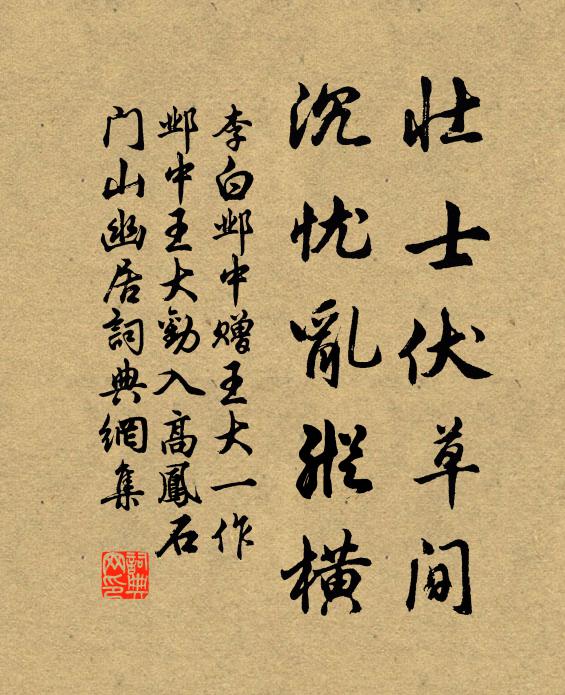 壮士伏草间
沉忧亂縱橫
李白邺中赠王大一作
邺中王大勸入高鳳石
门山幽居詞典網集
詞典网印